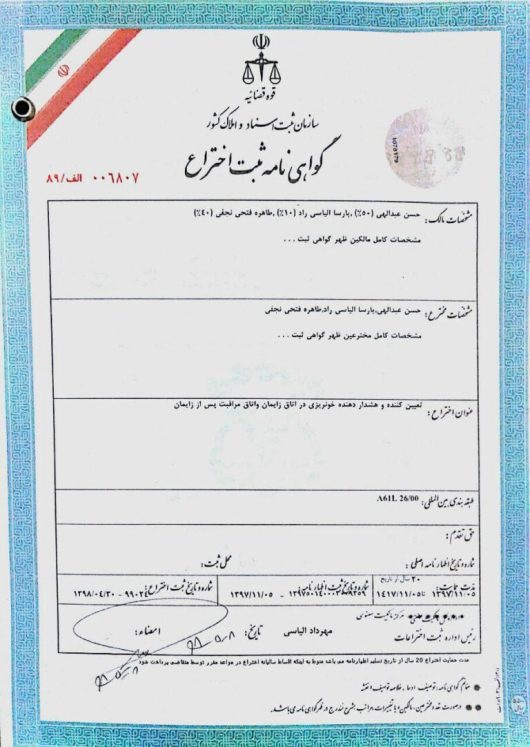 قوه قضائیه
سازمان ثبت اسناد و املاک کشور
گواهی نامه ثبت اختراع
۰۰۶۸۰۷ الف/۸۹
مشخصات مالک: حسن عبدالهی (۵۰٪) ,پارسا الیاسی راد (۱۰٪) ,طاهره فتحی نجفی (۴۰٪)
مشخصات کامل مالکین ظهر گواهی ثبت . . .
مشخصات مخترع: حسن عبدالهی,پارسا الیاسی راد,طاهره فتحی نجفی
مشخصات کامل مخترعین ظهر گواهی ثبت . . .
عنوان اختراع: تعیین کننده و هشدار دهنده خونریزی در اتاق زایمان واتاق مراقبت پس از زایمان
طبقه بندی بین المللی: A61L 26/00
حق تقدم:
شماره و تاریخ اظهارنامه اصلی: محل ثبت:
مدت حمایت: ۲۰ سال از تاریخ ۱۳۹۷/۱۱/۰۵ تا ۱۴۱۷/۱۱/۰۵
شماره و تاریخ ثبت اظهارنامه: ۱۳۹۷/۱۱/۰۵
شماره و تاریخ ثبت اختراع: ۱۳۹۸/۰۴/۳۰
مرکز مالکیت معنوی
رئیس اداره ثبت اختراعات مهرداد الیاسی تاریخ: امضاء:
مدت حمایت اختراع 20 سال از تاریخ تسلیم اظهارنامه می باشد منوط به اینکه اقساط سالیانه اختراع در مواعد مقرر توسط متقاضی پرداخت شود
ضمائم گواهی نامه: توصیف، ادعا، خلاصه توصیف، نقشه
درصورت تعدد مخترعین، مالکین و یا تغییرات، مراتب بشرح مندرج در ظهر گواهی نامه می باشد.